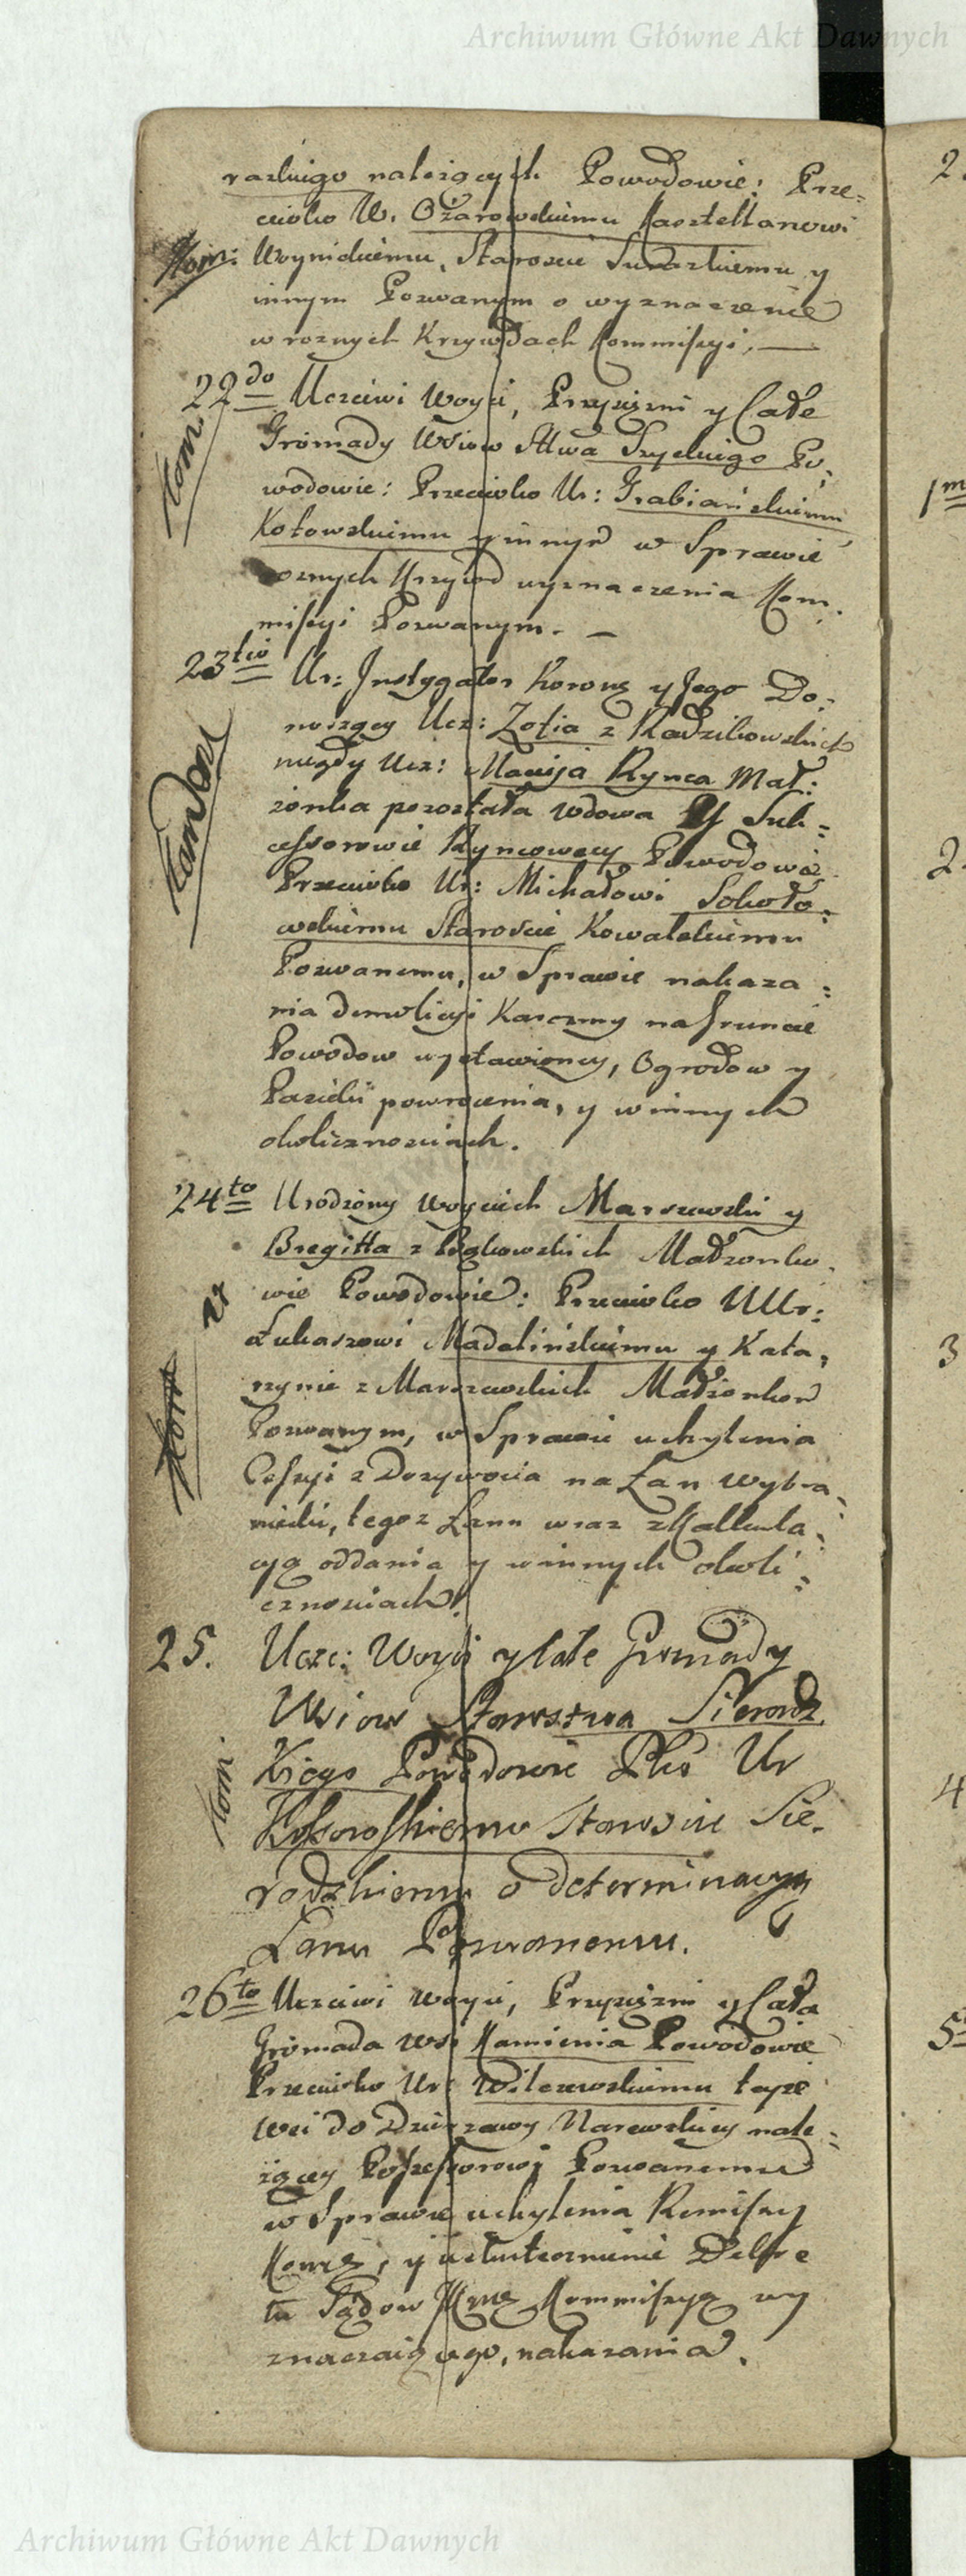 Archiwum Główne Akt Dawnych
raskiego należących Powodowie: Prze=
ciwko W. Ożarowskiemu Kasztellanowi
Kom: Woynickiemu, Staroscie Suraskiemu y
innym Pozwanym o wyznaczenie
w roznych Krzywdach Kommissyi. —
22do Uczciwi Woyci, Przysiężni y Całe
Kom: Gromady Wsiow Stwa Szyckiego Po=
wodowie: Przeciwko Ur: Grabiańskiemu
Kotowskiemu y innym w Sprawie
roznych Krzywd wyznaczenia Kom=
missyi Pozwanym. —
23tio Ur: Instygator Koronę y Jego Do=
noszący Ucz: Zofia z Radzikowskich
niegdy Ucz: Macieja Rynca Mał=
żonka pozostała wdowa Y Suk=
cessorowie Ryncowscy Powodowie
Przeciwko Ur: Michałowi Sokoło=
wskiemu Staroście Kowalskiemu
Pozwanemu, w Sprawie nakaza=
nia demolicyi Karczmy na Gruncie
Powodow wystawioney, Ogrodow y
Pasieki powrocenia, y w innych
okolicznosciach.
24to Urodzony Woyciech Marszewski y
Bregitta z Bąkowskich Małżonko=
wie Powodowie: Przeciwko UUr:
Łukaszowi Madalińskiemu y Kata=
Kom rzynie z Marszewskich Małżonkom
Pozwanym, w Sprawie uchylenia
Cessyi z Dożywocia na Łan Wybra=
niecki, tegoż Łanu wraz z Kalkula=
cyą oddania y w innych okoli=
cznosciach.
25. Ucz: Woyci y Całe Gromady
Wsiow Starostwa Sieradz
Kom: Kiego Powodowie Pko Ur
Kossowskiemu Staroscie Sie=
radzkiemu o determinacyą
Łanu Pozwanemu.
26to Uczciwi Woyci, Przysiężni y Cała
Gromada Wsi Kamienia Powodowie
Przeciwko Ur: Wilczewskiemu teyże
wsi do Dzierzawy Narewskiey nale=
żącey Possessorowi Pozwanemu
w Sprawie uchylenia Remissy
y uskutecznienie Dekre
tu Sądow Kommissyą wy
znaczaiącego, nakazania.
2.
1m
2.
3
4
5t
Archiwum Główne Akt Dawnych